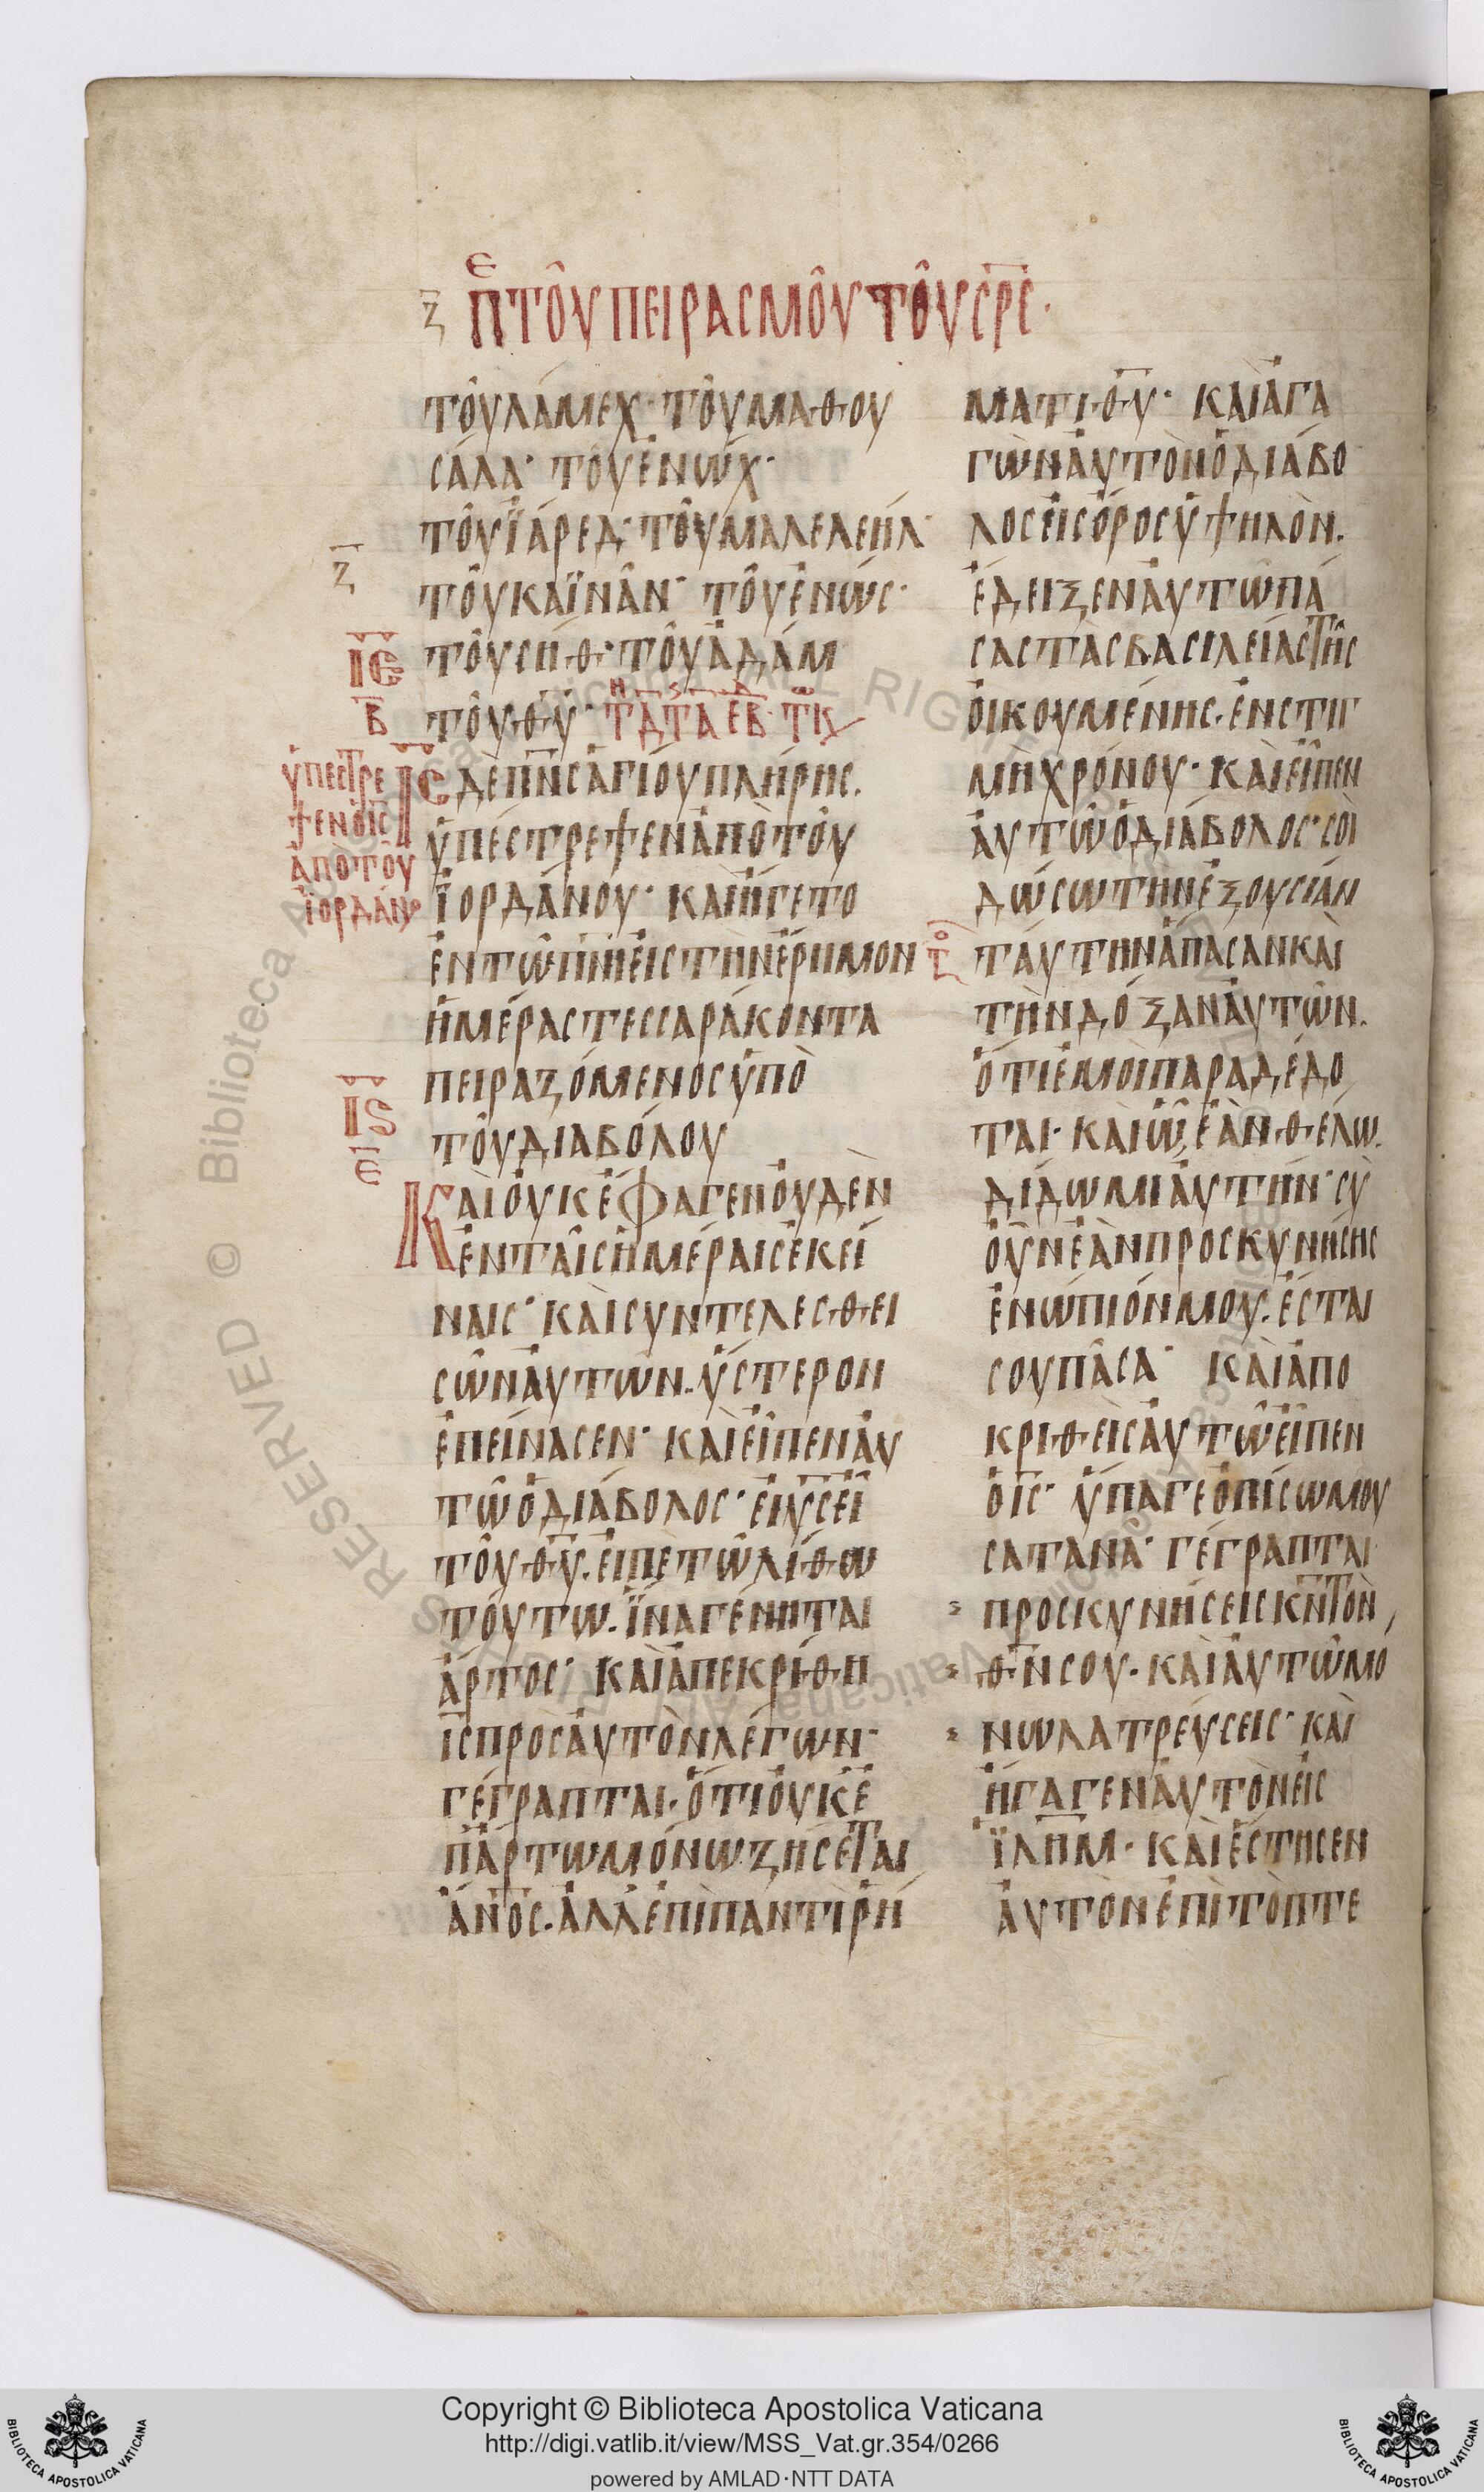 Ε
Ζ Π̅ ΤΟΥ ΠΕΙΡΑΣΜΟΥ ΤΟΥ Σ̅Ρ̅Σ̅·
ΤΟΥ ΛΑΜΕΧ· ΤΟΥ ΜΑΘΟΥ
ΣΑΛΑ· ΤΟΥ ΕΝΩΧ·
ΤΟΥ ΪΑΡΕΔ· ΤΟΥ ΜΑΛΕΛΕΗΛ·
Ζ̅
ΤΟΥ ΚΑΪΝΑΝ· ΤΟΥ ΕΝΩΣ·
Ι̅Ε̅
ΤΟΥ ΣΗΘ· ΤΟΥ ΑΔΑΜ
Β̅
ΤΟΥ Θ̅Υ̅·
Ι̅Σ̅ ΔΕ Π̅Ν̅Σ̅ ΑΓΙΟΥ ΠΛΗΡΗΣ.
ΥΠΕΣΤΡΕΨΕΝ ΑΠΟ ΤΟΥ
ΪΟΡΔΑΝΟΥ· ΚΑΙ ΗΓΕΤΟ
ΕΝ ΤΩ Π̅Ν̅Ι̅ ΕΙΣ ΤΗΝ ΕΡΗΜΟΝ
ΗΜΕΡΑΣ ΤΕΣΣΑΡΑΚΟΝΤΑ
ΠΕΙΡΑΖΟΜΕΝΟΣ ΥΠΟ
ΤΟΥ ΔΙΑΒΟΛΟΥ
ΥΠΕΣΤΡΕ
ΨΕΝ Ο Ι̅Σ̅
ΑΠΟ ΤΟΥ
ΪΟΡΔΑΝΟΥ
Ι̅Ϛ̅
Ε̅
ΚΑΙ ΟΥΚ ΕΦΑΓΕΝ ΟΥΔΕΝ
ΕΝ ΤΑΙΣ ΗΜΕΡΑΙΣ ΕΚΕΙ
ΝΑΙΣ· ΚΑΙ ΣΥΝΤΕΛΕΣΘΕΙ
ΣΩΝ ΑΥΤΩΝ. ΥΣΤΕΡΟΝ
ΕΠΕΙΝΑΣΕΝ· ΚΑΙ ΕΙΠΕΝ ΑΥ
ΤΩ Ο ΔΙΑΒΟΛΟΣ· ΕΙ Υ̅Σ̅ ΕΙ
ΤΟΥ Θ̅Υ̅. ΕΙΠΕ ΤΩ ΛΙΘΩ
ΤΟΥΤΩ. ΪΝΑ ΓΕΝΗΤΑΙ
ΑΡΤΟΣ· ΚΑΙ ΑΠΕΚΡΙΘΗ
Ι̅Σ̅ ΠΡΟΣ ΑΥΤΟΝ ΛΕΓΩΝ·
ΓΕΓΡΑΠΤΑΙ· ΟΤΙ ΟΥΚ Ε
Π ΑΡΤΩ ΜΟΝΩ ΖΗΣΕΤΑΙ
Α̅Ν̅Ο̅Σ̅. ΑΛΛ ΕΠΙ ΠΑΝΤΙ ΡΗ
ΜΑΤΙ Θ̅Υ̅· ΚΑΙ ΑΓΑ
ΓΩΝ ΑΥΤΟΝ Ο ΔΙΑΒΟ
ΛΟΣ ΕΙΣ ΟΡΟΣ ΥΨΗΛΟΝ.
ΕΔΕΙΞΕΝ ΑΥΤΩ ΠΑ
ΣΑΣ ΤΑΣ ΒΑΣΙΛΕΙΑΣ ΤΗΣ
ΟΙΚΟΥΜΕΝΗΣ. ΕΝ ΣΤΙΓ
ΜΗ ΧΡΟΝΟΥ· ΚΑΙ ΕΙΠΕΝ
ΑΥΤΩ Ο ΔΙΑΒΟΛΟΣ· ΣΟΙ
ΔΩΣΩ ΤΗΝ ΕΞΟΥΣΙΑΝ
ΤΑΥΤΗΝ ΑΠΑΣΑΝ ΚΑΙ
ΤΗΝ ΔΟΞΑΝ ΑΥΤΩΝ.
ΟΤΙ ΕΜΟΙ ΠΑΡΑΔΕΔΟ
ΤΑΙ· ΚΑΙ Ω ΕΑΝ ΘΕΛΩ.
ΔΙΔΩΜΙ ΑΥΤΗΝ· ΣΥ
ΟΥΝ ΕΑΝ ΠΡΟΣΚΥΝΗΣΗΣ
ΕΝΩΠΙΟΝ ΜΟΥ. ΕΣΤΑΙ
ΣΟΥ ΠΑΣΑ· ΚΑΙ ΑΠΟ
ΚΡΙΘΕΙΣ ΑΥΤΩ ΕΙΠΕΝ
Ο Ι̅Σ̅· ΥΠΑΓΕ ΟΠΙΣΩ ΜΟΥ
ΣΑΤΑΝΑ· ΓΕΓΡΑΠΤΑΙ
ΠΡΟΣΚΥΝΗΣΕΙΣ Κ̅Ν̅ ΤΟΝ
Θ̅Ν̅ ΣΟΥ. ΚΑΙ ΑΥΤΩ ΜΟ
ΝΩ ΛΑΤΡΕΥΣΕΙΣ· ΚΑΙ
ΗΓΑΓΕΝ ΑΥΤΟΝ ΕΙΣ
Ϊ̅Λ̅Η̅Μ̅· ΚΑΙ ΕΣΤΗΣΕΝ
ΑΥΤΟΝ ΕΠΙ ΤΟ ΠΤΕ
Copyright © Biblioteca Apostolica Vaticana
http://digi.vatlib.it/view/MSS_Vat.gr.354/0266
powered by AMLAD·NTT DATA
BIBLIOTECA APOSTOLICA VATICANA
BIBLIOTECA APOSTOLICA VATICANA